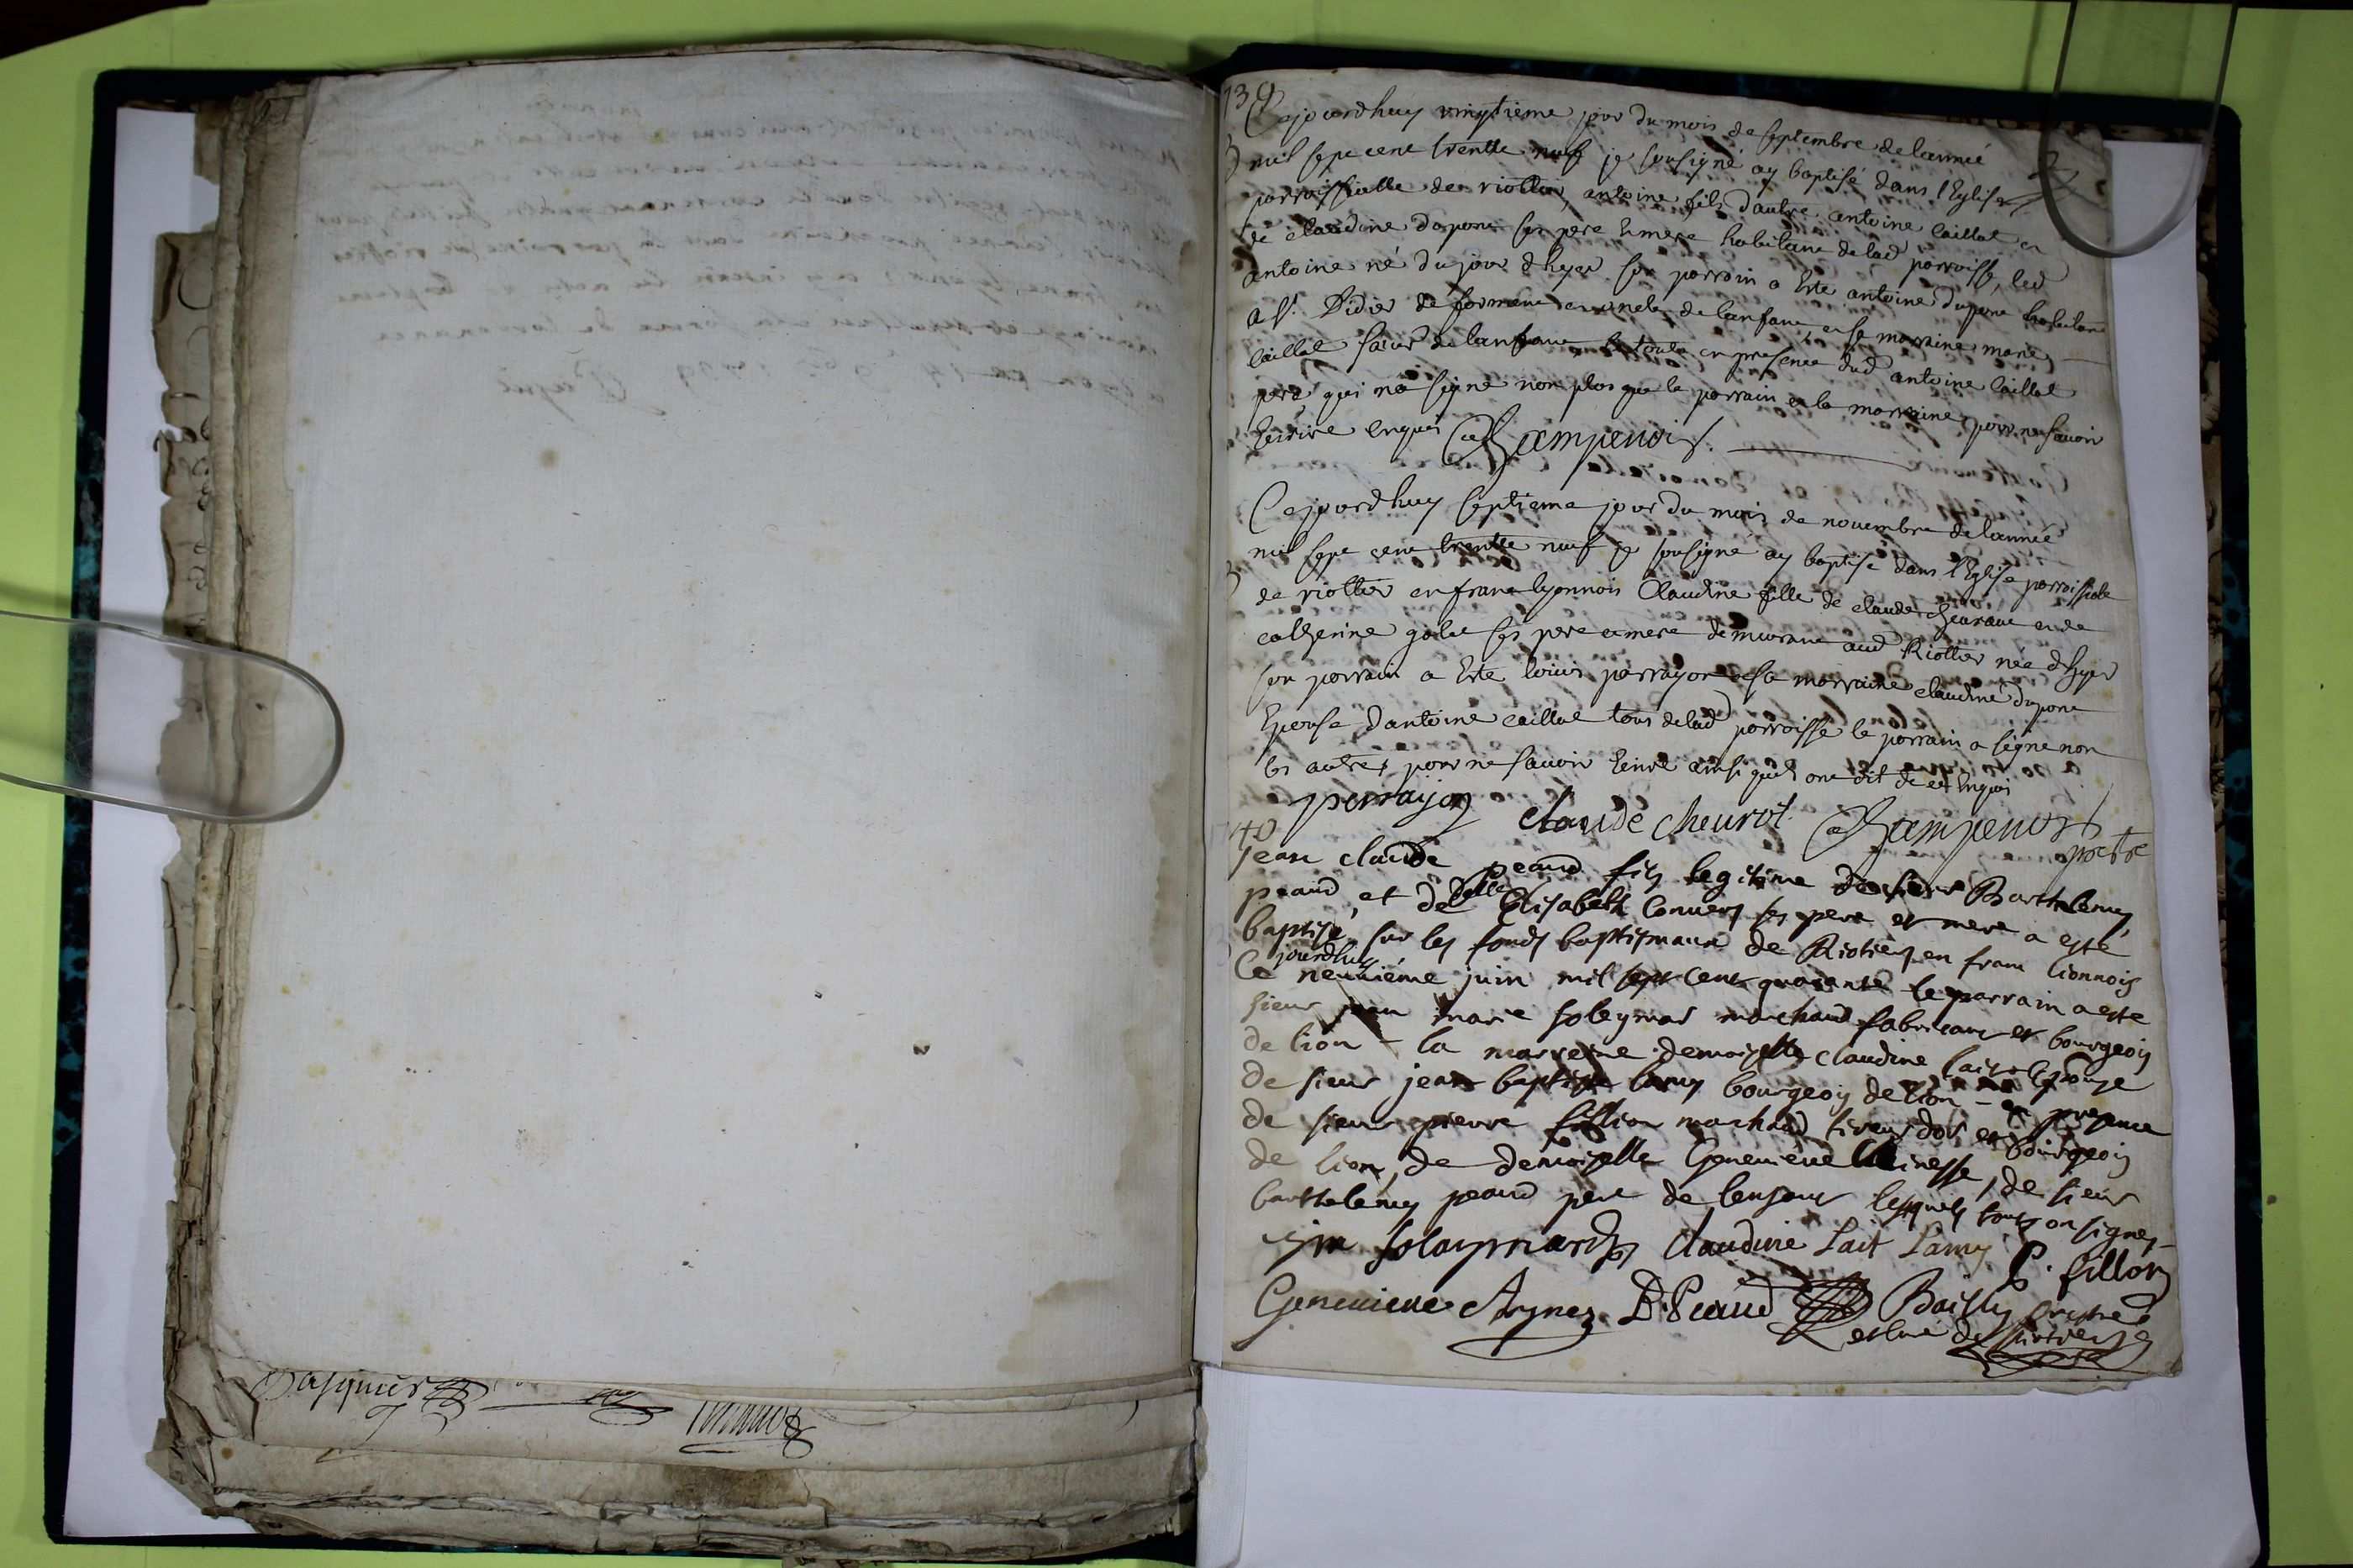 139
Cejourdhuy vingtieme jour du mois de septembre delannée
mil sept cent trentte nuef je sousigné ay baptisé dans l'Eglise
parroissialle de riottier, antoine fils d'autre antoine caillat et
de claudine dupont ses pere et mere habitant de lad parroisse, led
antoine né du jour dhyer son parrain a Este antoine dupont habitant
a St. Didier de formant et oncle de lenfant, et sa marraine marie
caillat soeur de lenfant le toute en presence dud antoine caillat
pere qui na signé non plus que le parrain et la marraine pour ne savoir
Ecrire enquis Champenois.
Cejourdhuy septieme jour du mois de novembre delannée
mil sept cent trentte nuef je sousigné ay baptisé dans l'Eglise parroissiale
de riottier en franc lyonnois Claudine fille de claude cheurant et de
catherine galet ses pere et mere demeurant aud Riottier née dhyer
son parrain a Este louis perrayon et sa marraine claudine dupont
Epouse d'antoine caillat tous delad parroisse le parrain a signé non
les autres pour ne savoir Ecrire ainsi quils ont dit de ce Enquis
perrayon claude cheurot Champenois
prestre
40
jean claude peaud fils legitime de sieur Barthelemy
peaud, et de Delle Elisabeth Convers ses pere et mere a esté
baptisé sur les fonds baptismaux de Riotiers en franc lionnois
Ce jourdhuy neuvième juin mil sept cent quarante le parrain a esté
sieur jean marie soleymar marchand fabricant et bourgeois
de lion - la marreine demoiselle claudine lait Epouze
de sieur jean baptiste lamy bourgeois de lion - en presence
de sieur pierre fillion marchand tireur dor et bourgeois
de lion, de demoiselle Genevieve, de sieur
barthelemy peaud pere de lenfant lesquels touts on signez
jm Solaymard Claudine Lait Lamy P. fillon
Genevieve Aynez B. Peaud Bailly prestre
et curé de Riotiers
Pasquier